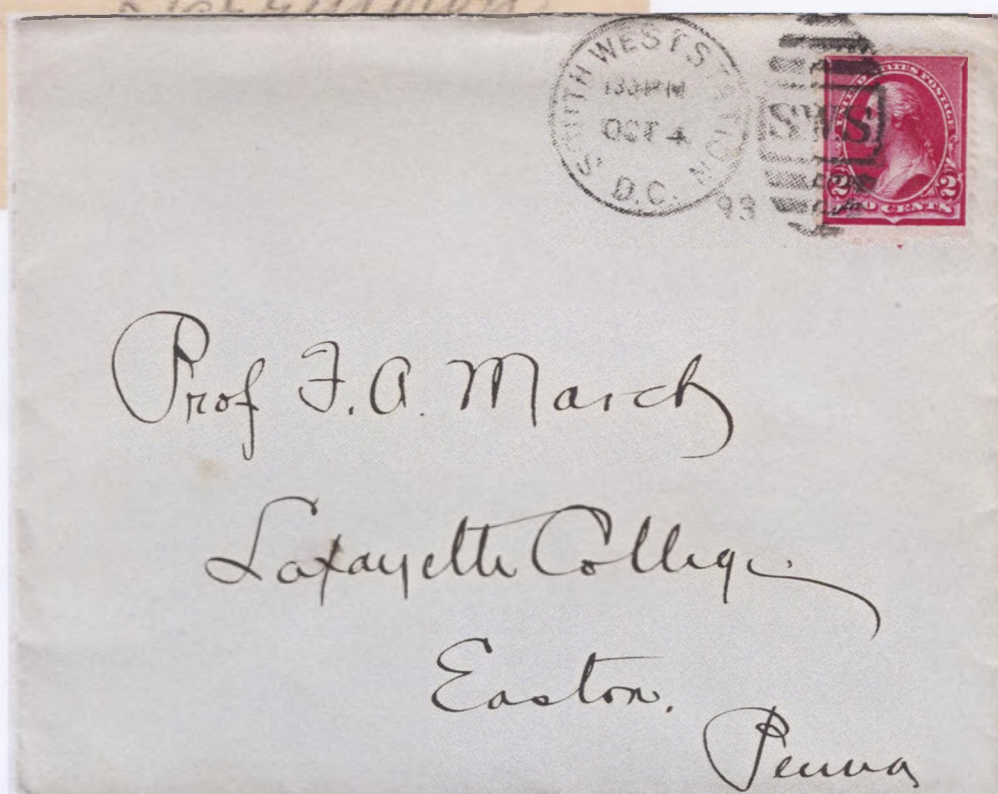 SOUTH WEST STATION
130 PM
OCT 4
D.C.
93
SWS
UNITED STATES POSTAGE
2 2
TWO CENTS
Prof F. A. March
Lafayette College.
Easton.
Penna